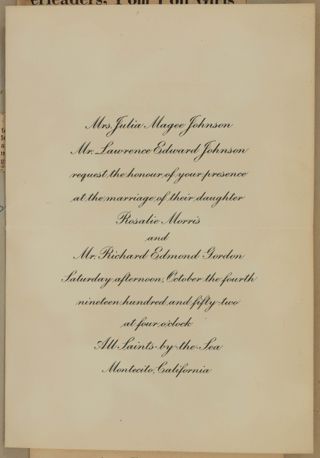 erleaders, Pom Pon Girls
Mrs. Julia Magee Johnson
Mr. Lawrence Edward Johnson
request the honour of your presence
at the marriage of their daughter
Rosalie Morris
and
Mr. Richard Edmond Gordon
Saturday afternoon, October the fourth
nineteen hundred and fifty-two
at four o'clock
All-Saints-by-the-Sea
Montecito, California